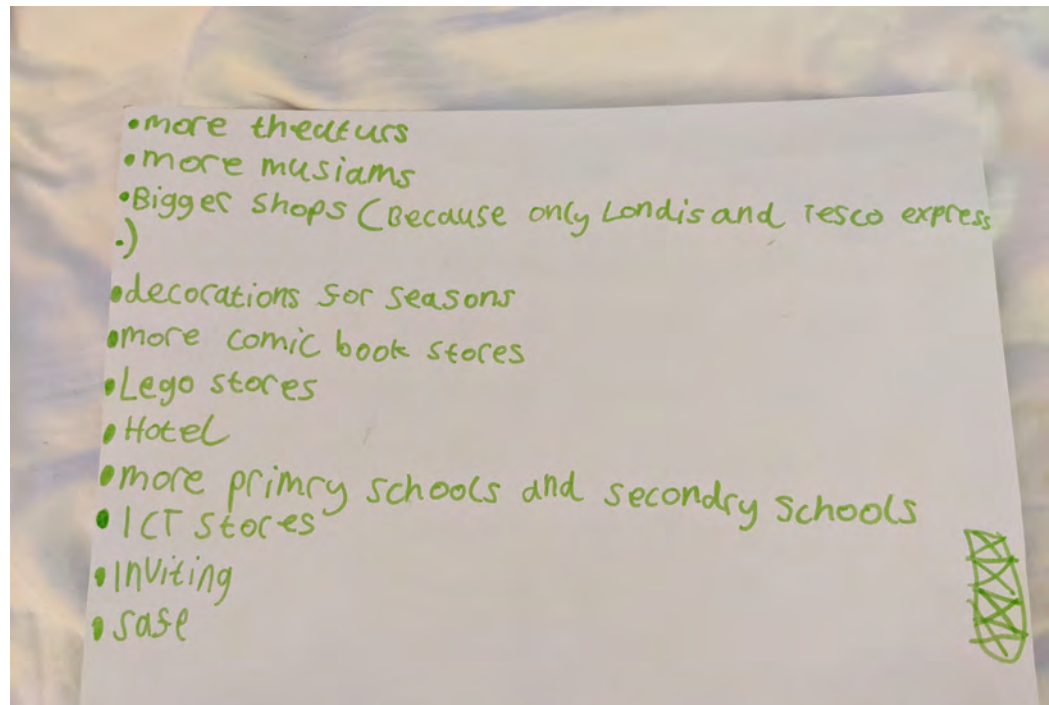 •more theaturs
•more musiams
•Bigger shops (Because only Londis and Tesco express
.)
•decorations for seasons
•more comic book stores
•Lego stores
•Hotel
•more primry schools and secondry schools
•ICT stores
•Inviting
•safe